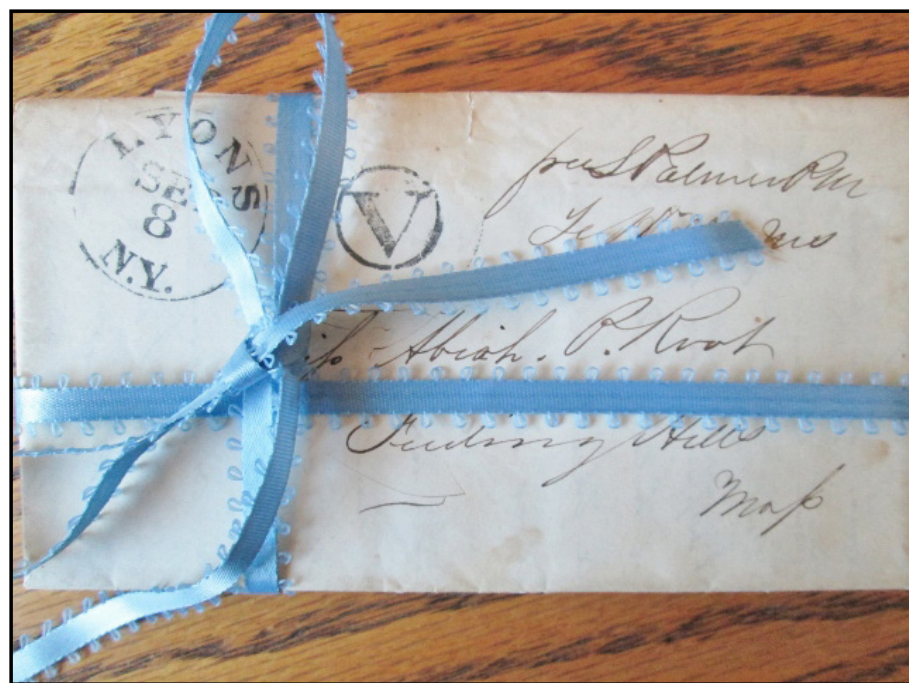 LYONS
SEP
8
N.Y.
V
free S Palmer PM
Abiah. P. Root
Feeding Hills
Mass